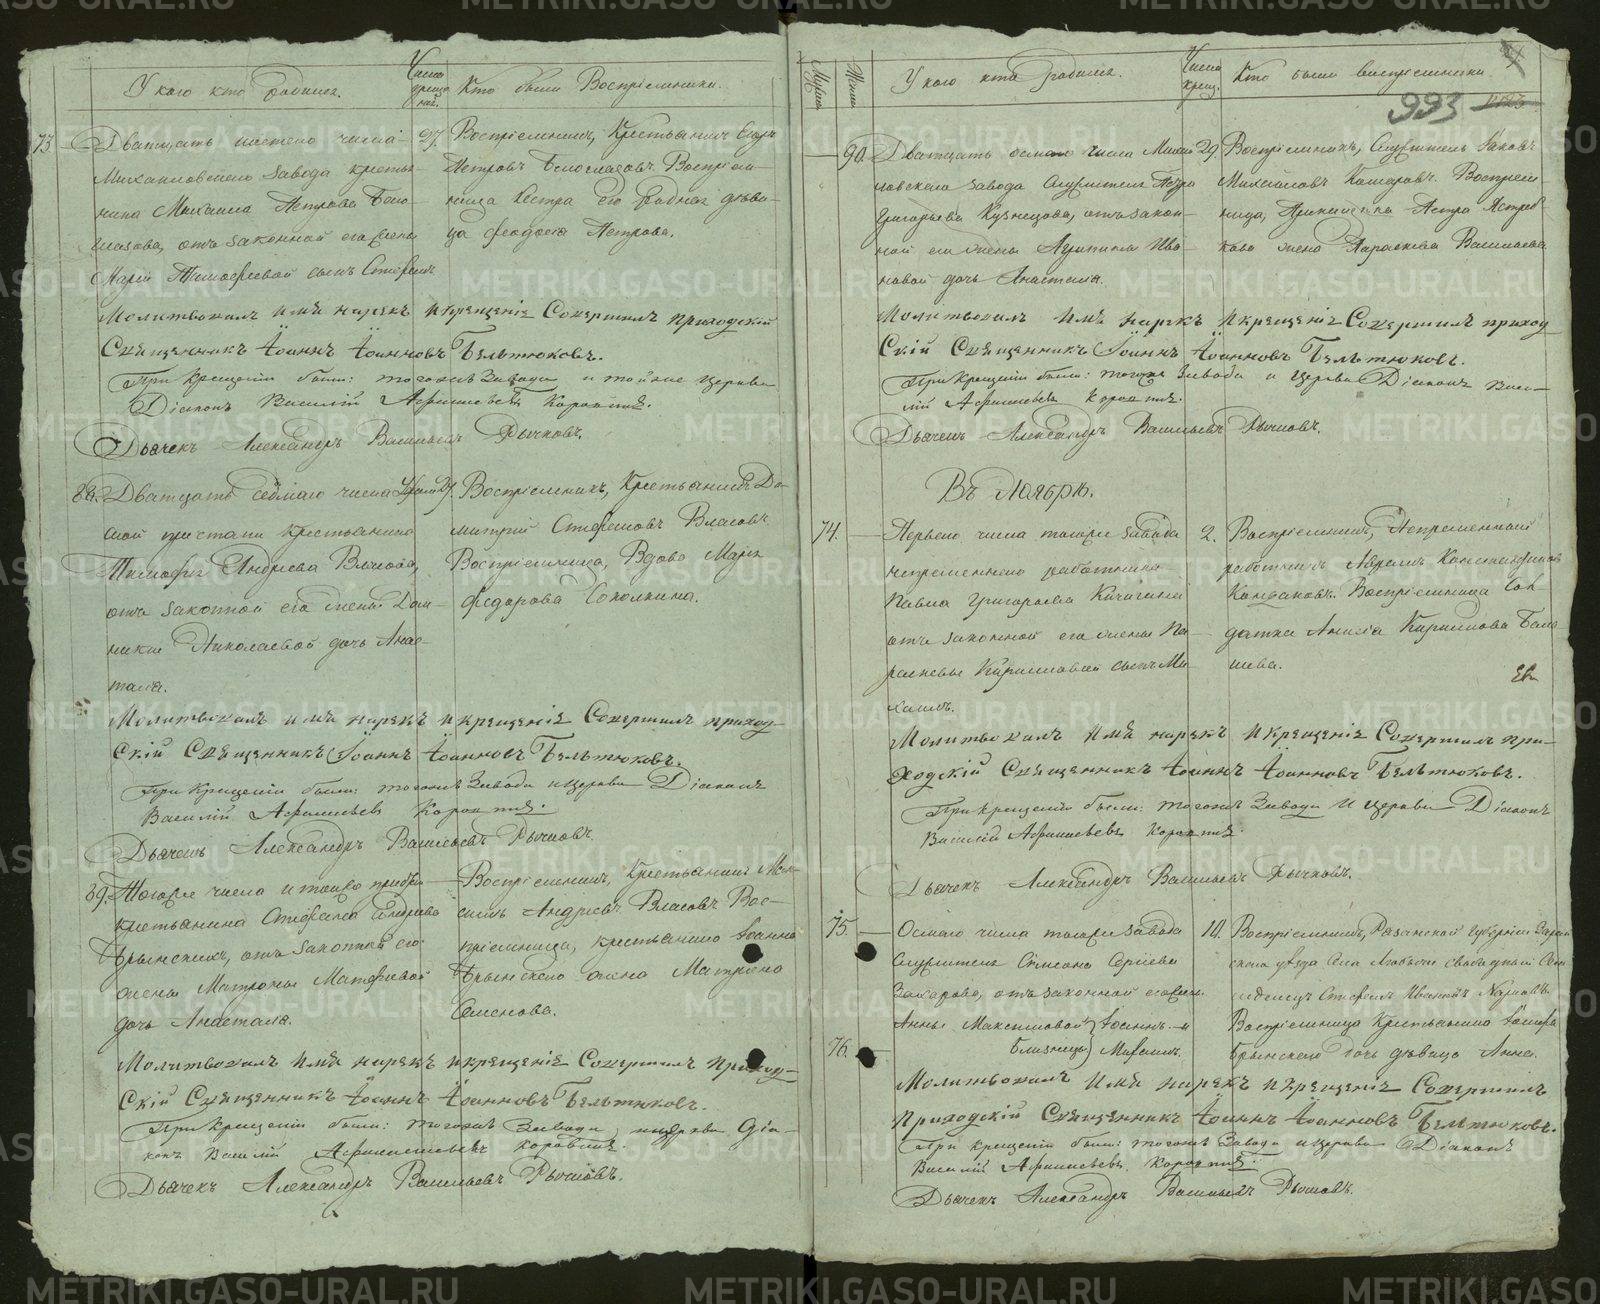 У кого кто родился.
Число крещений.
Кто были Воспріемники.
73
Дватцать шестого числа
Михаиловского завода крестья-
нина Михаила Петрова Бело-
глазова, отъ законной его жены
Маріи Тимофеевой сынъ Стефанъ
27.
Воспріемникъ, Крестьянинъ Егоръ
Петровъ Белоглазовъ Воспріем-
ница Сестра его родная девви-
ца Феодосія Петрова.
Молитвовалъ имя нарекъ и крещеніе Совершилъ приходскій
Священникъ Іоаннъ Іоанновъ Бельтюковъ.
При крещеніи были: тогожъ Завода и тойже церкви
Діаконъ Василій Афанасьевъ Коровинъ.
Дьячекъ Александръ Васильевъ Рычковъ.
88.
Дватцать седмаго числа
ской пристани крестьянина
Тимофея Андреева Власова,
отъ законной его жены Дом-
никіи Николаевой дочь Анас-
тасія.
27.
Воспріемникъ, Крестьянинъ Ди-
митрій Стефановъ Власовъ
Воспріемница, Вдова Марія
Федорова Соколкина.
Молитвовалъ имя нарекъ и крещеніе Совершилъ приход-
скій Священникъ Іоаннъ Іоанновъ Бельтюковъ.
При Крещеніи были: тогожъ Завода и церкви Діаконъ
Василій Афанасьевъ Коровинъ.
Дьячекъ Александръ Васильевъ Рычковъ.
89.
Тогоже числа и
крестьянина Стефана Андреева
Брынскихъ, отъ законной его
жены Матроны Матфеевой
дочь Анастасія.
Воспріемникъ, Крестьянинъ Мак-
симъ Андреевъ Власовъ Вос-
пріемница, крестьянина Іоанна
Брынского жена Матрона
Семенова.
Молитвовалъ имя нарекъ и крещеніе Совершилъ приход-
скій Священникъ Іоаннъ Іоанновъ Бельтюковъ.
При Крещеніи были: тогожъ Завода и церкви Діа-
конъ Василій Афанасьевъ Коровинъ.
Дьячекъ Александръ Васильевъ Рычковъ.
Мужеск.
Женск.
У кого кто родился.
Числа крещ.
Кто были воспріемники.
993
90.
Дватцать осмаго числа Михаи-
ловскаго завода Служителя Петра
Григорьева Кузнецова, отъ закон-
ной его жены Ива-
новой дочь Анастасія.
29.
Воспріемникъ, Служитель Іаковъ
Михайловъ Комаровъ. Воспріем
ница, Петра Ястреб-
кова жена Параскева Васильева
Молитвовалъ имя нарекъ и крещеніе Совершилъ приход
скій Священникъ Іоаннъ Іоанновъ Бельтюковъ.
При Крещеніи были: тогожъ Завода и церкви Діаконъ Васи-
лій Афанасьевъ Коровинъ.
Дьячекъ Александръ Васильевъ Рычковъ.
Въ Ноябрѣ.
74.
Перваго числа тогоже завода
непременнаго работника
Павла Григорьева Кичигина
отъ законной его жены Па-
раскевы Кириловой сынъ Ми-
хаилъ.
2.
Воспріемникъ, Непременный
работникъ Аврамъ Константиновъ
Кондаковъ. Воспріемница Сол-
датка Анисія Кирилова Бала-
шева.
Молитвовалъ имя нарекъ и крещеніе Совершилъ при-
ходскій Священникъ Іоаннъ Іоанновъ Бельтюковъ.
При крещеніи были: тогожъ Завода и церкви Діаконъ
Василій Афанасьевъ Коровинъ.
Дьячекъ Александръ Васильевъ Рычковъ.
75.
76.
Осмаго числа тогоже завода
Служителя Симеона Сергеева
Захарова, отъ законной его жены
Анны Максимовой Іоаннъ и
близнецы Михаилъ.
10.
Воспріемникъ, Рязанской губерніи Зарай
скаго уезда Села Ловцы свободный
Стефанъ Ивановъ
Воспріемница Крестьянина Іосифа
Брынскаго дочь девица Анна.
Молитвовалъ имя нарекъ и крещеніе Совершилъ
приходскій Священникъ Іоаннъ Іоанновъ Бельтюковъ.
При крещеніи были: тогожъ Завода и церкви Діаконъ
Василій Афанасьевъ Коровинъ.
Дьячекъ Александръ Васильевъ Рычковъ.
METRIKI.GASO-URAL.RU